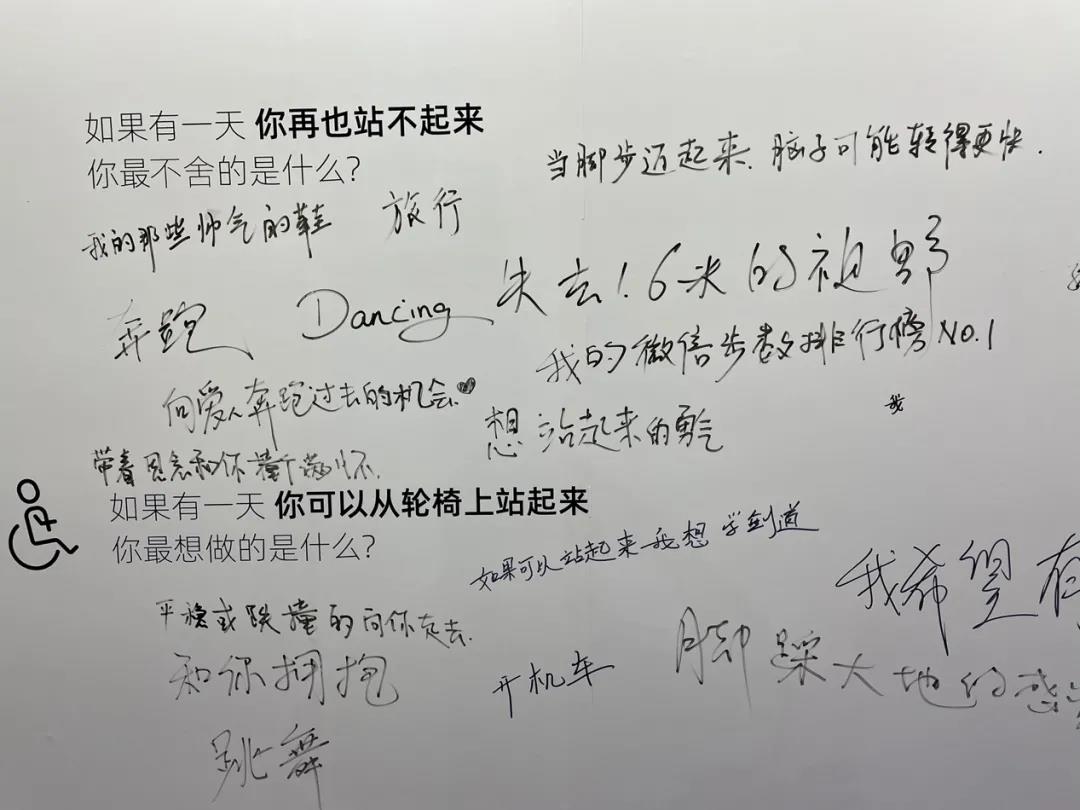 如果有一天 你再也站不起来
你最不舍的是什么?
当脚步迈起来、脑子可能转得更快.
我的那些帅气的鞋
旅行
奔跑
Dancing
失去1.6米的视野
我的微信步数排行榜NO.1
向爱人奔跑过去的机会.
想站起来的勇气
我
带着思念和你撞个满怀.
如果有一天 你可以从轮椅上站起来
你最想做的是什么?
如果可以站起来我想学剑道
我希望有
平稳或跌撞的向你走去.
和你拥抱
开机车
脚踩大地的感
跳舞